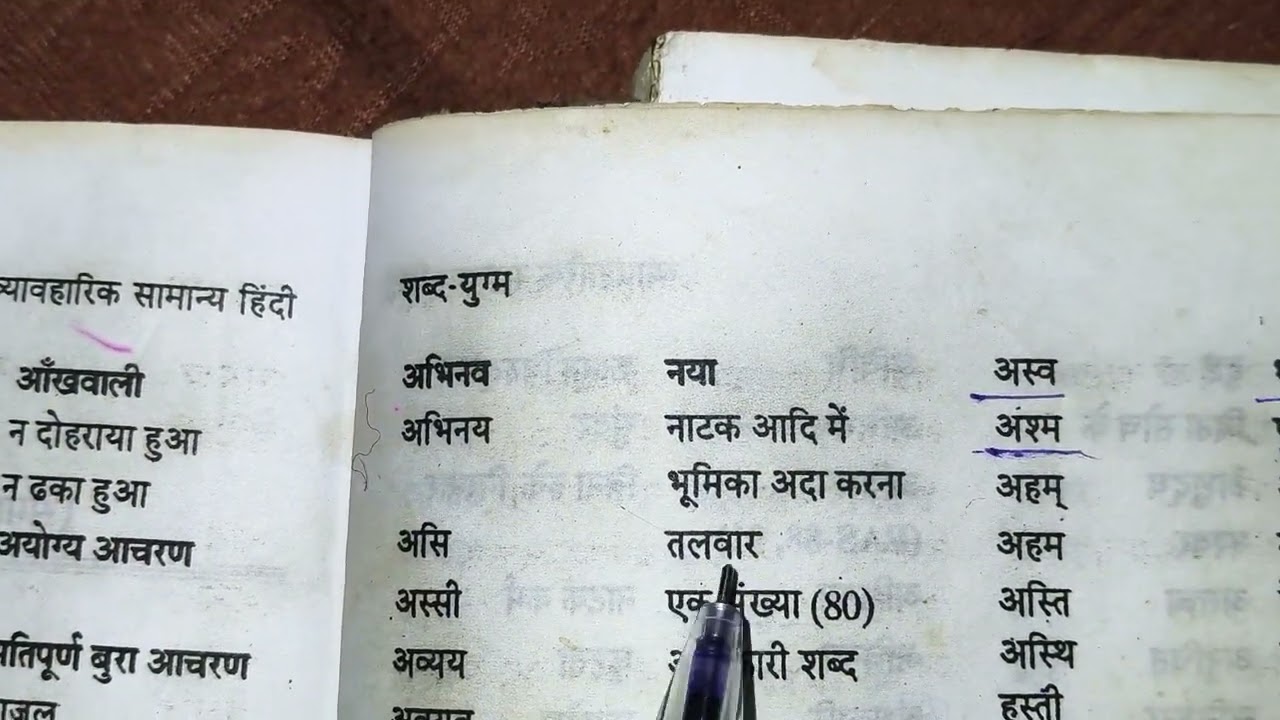 व्यावहारिक सामान्य हिंदी
आँखवाली
न दोहराया हुआ
न ढका हुआ
अयोग्य आचरण
बुरा आचरण
शब्द-युग्म
अभिनव नया अस्व
अभिनय नाटक आदि में अंश्म
भूमिका अदा करना अहम्
असि तलवार अहम
अस्सी एक संख्या (80) अस्ति
अव्यय शब्द अस्थि
हस्ती